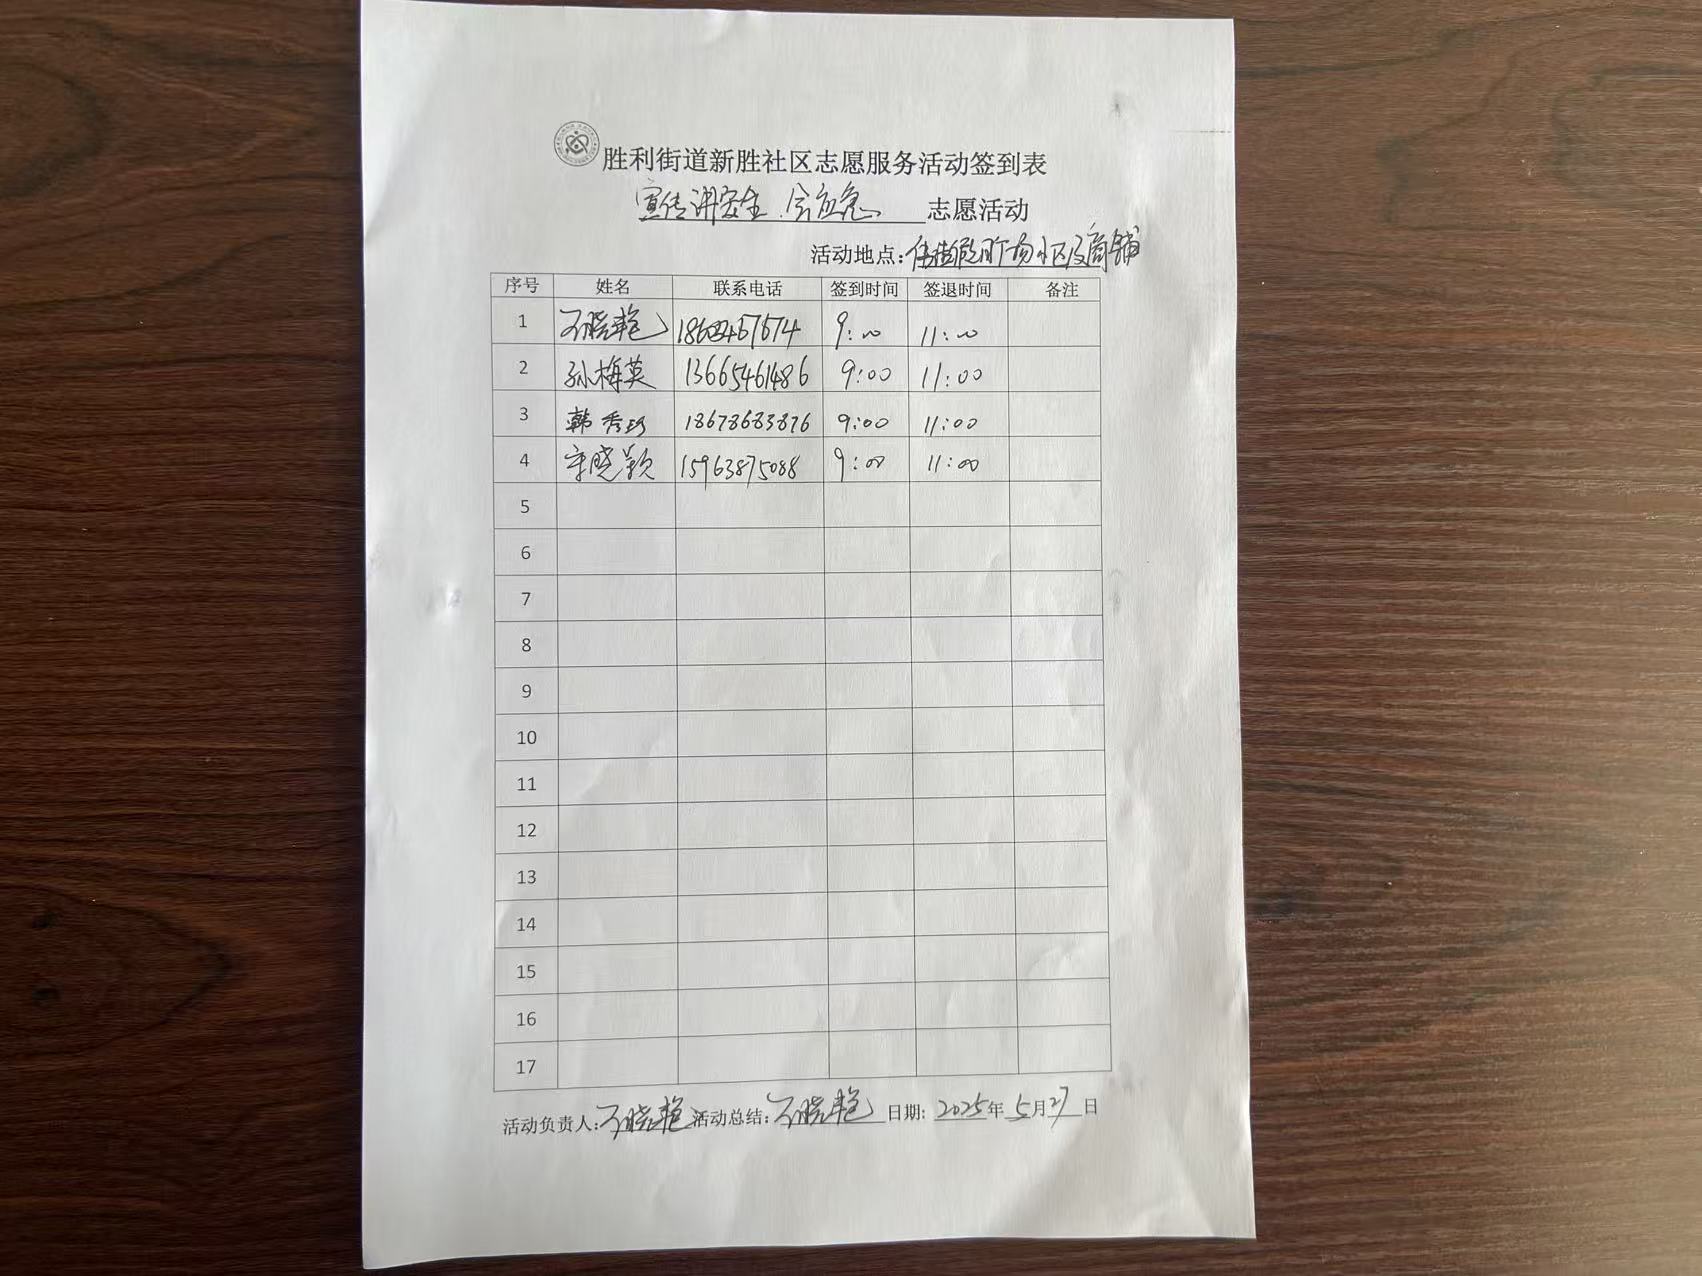 胜利街道新胜社区志愿服务活动签到表
宣传讲安全、会应急 志愿活动
活动地点: 广场小区及商铺
序号 姓名 联系电话 签到时间 签退时间 备注
1 石晓艳 9:00 11:00
2 孙梅英 13665461486 9:00 11:00
3 韩秀珍 18678683876 9:00 11:00
4 宋晓颖 15963875088 9:00 11:00
5
6
7
8
9
10
11
12
13
14
15
16
17
活动负责人: 石晓艳 活动总结: 石晓艳 日期: 2025年 5月 27日